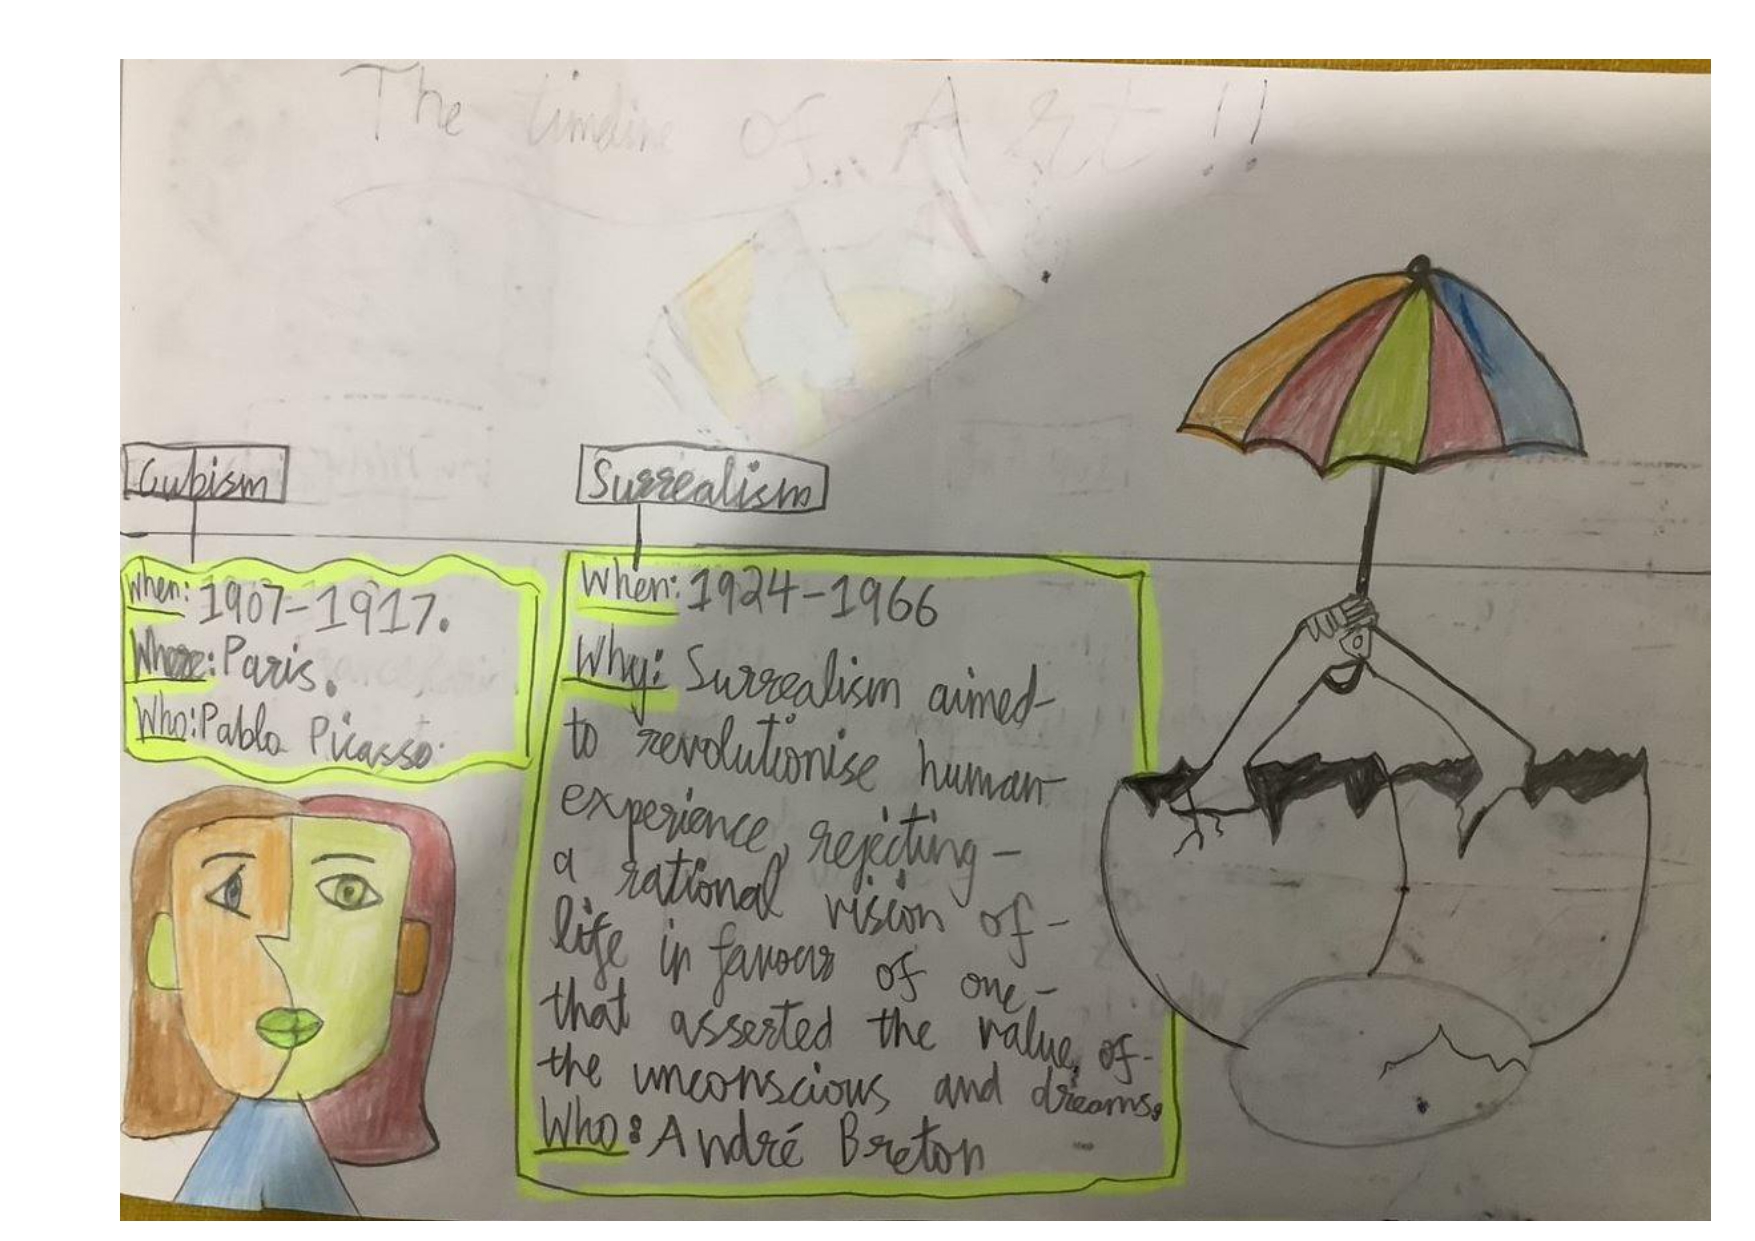 The timeline of Art !!
Cubism
When: 1907-1917.
Where: Paris.
Who: Pablo Picasso.
Surrealism
When: 1924-1966
Why: Surrealism aimed-
to revolutionise human-
experience, rejecting-
a rational vision of-
life in favour of one-
that asserted the value of-
the unconscious and dreams.
Who: André Breton